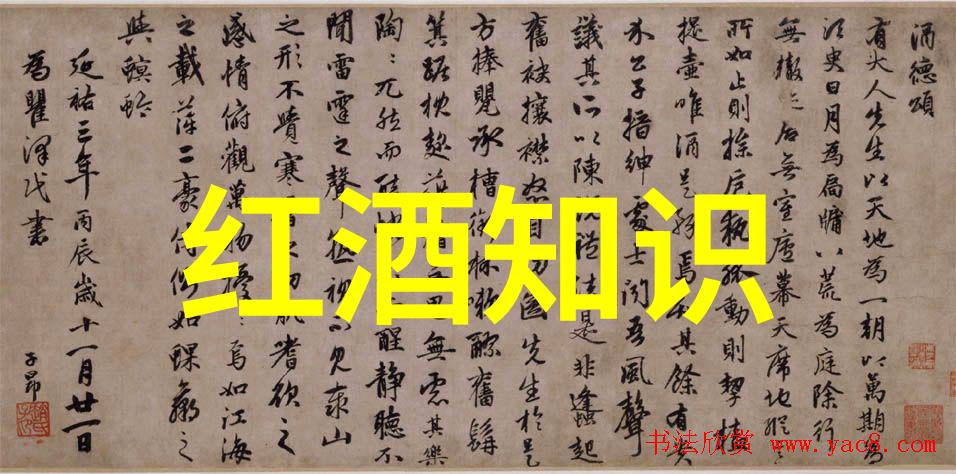 酒德頌
有大人先生以天地為一朝以萬期為
須臾日月為扃牖八荒為庭除行
無轍迹居無室廬幕天席地縱意
所如止則操卮執觚動則挈榼
提壺唯酒是務焉知其餘有貴
介公子搢紳處士聞吾風聲
議其所以陳說禮法是非蠭起
奮袂攘襟怒目切齒先生於是
方捧甖承槽銜杯漱醪奮髯
箕踞枕麴藉糟無思無慮其樂
陶〻兀然而醉 醒靜聽不
聞雷霆之聲熟視不見泰山
之形不覺寒暑之切肌嗜欲之
感情俯觀萬物擾〻焉如江海
之載萍二豪侍側如蜾蠃之
與螟蛉
延祐三年丙辰歲十一月廿一日
為瞿澤 書
子昂
红酒知识
书法欣赏 www.yac8.com